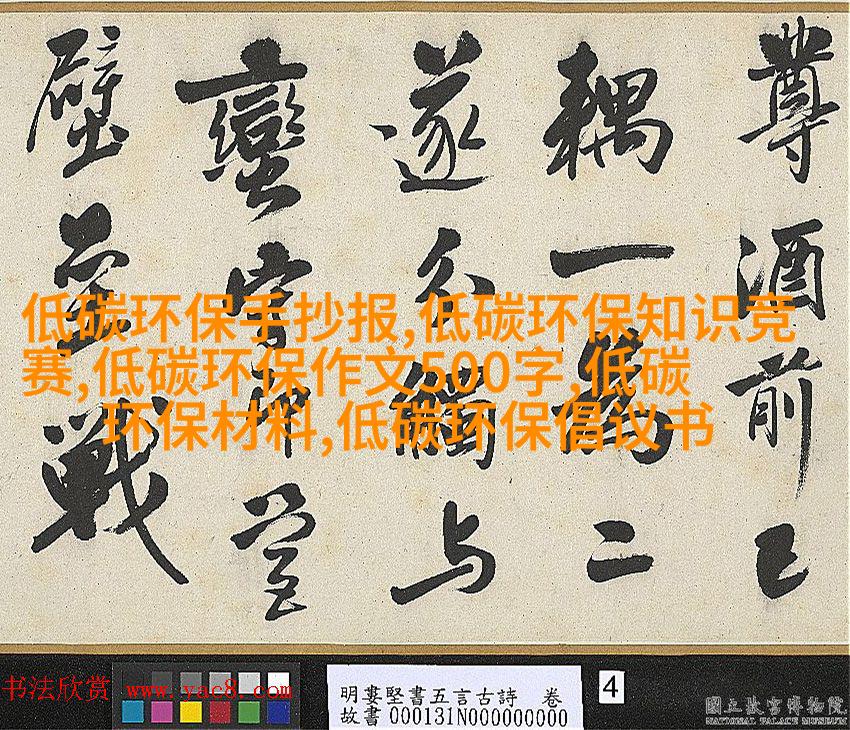 尊酒前已
耦一為二
遂分觸与
蠻
壁戰
低碳环保手抄报,低碳环保知识竞
赛,低碳环保作文500字,低碳
环保材料,低碳环保倡议书
书法欣赏 www.yac8.com
明婁堅書五言古詩 卷
故書 000131N000000000
4
國立故宮博物院
NATIONAL PALACE MUSEUM